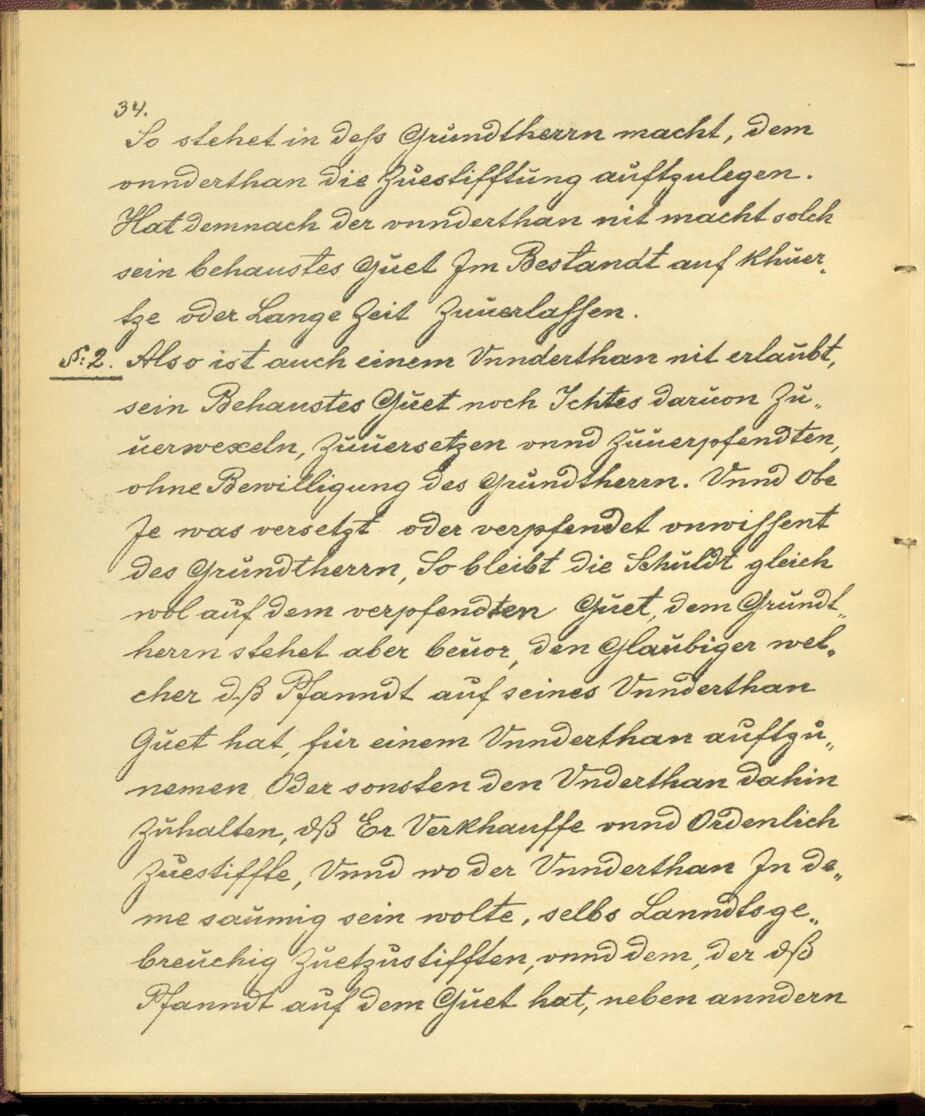 34.
So stehet in deß Grundtherrn macht, dem
vnnderthan die Zuestifftung auftzulegen.
Hat demnach der vnnderthan nit macht solch
sein behaustes Guet Im Bestandt auf Khuer„
tze oder Lange Zeit Zuuerlassen.
N: 2. Also ist auch einem Vnnderthan nit erlaubt,
sein Behaustes Guet noch Ichtes daruon Zu„
uerwexeln, Zuuersetzen vnnd Zuuerpfendten,
ohne Bewilligung des Grundtherrn. Vnnd Obe
Je was versetzt oder verpfendet vnwissent
des Grundtherrn, So bleibt die Schuldt gleich
wol auf dem verpfendten Guet, dem Grundt„
herrn stehet aber beuor, den Glaubiger wel„
cher dß Pfanndt auf seines Vnnderthan
Guet hat, für einem Vnnderthan auftzu„
nemen Oder sonsten den Vnderthan dahin
Zuhalten, dß Er Verkhauffe vnnd Ordenlich
Zuestiffte, Vnnd wo der Vnnderthan In de„
me saumig sein wolte, selbs Lanndtsge„
breuchig Zuetzustifften, vnnd dem, der dß
Pfanndt auf dem Guet hat, neben anndern